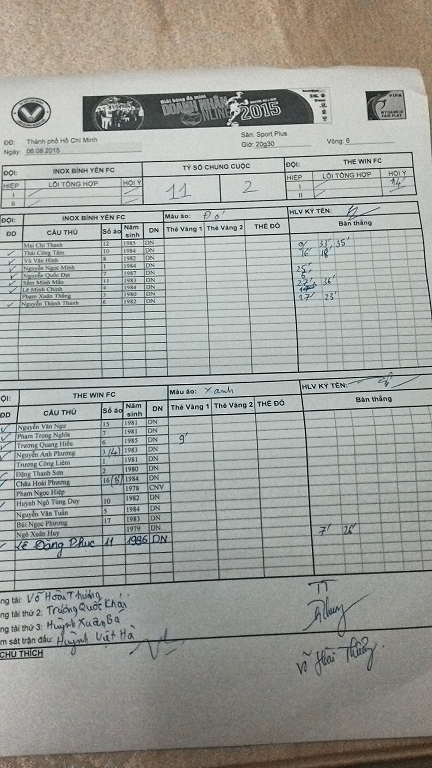 Giải bóng đá mini
DOANH NHÂN
ONLINE 2015
FIFA
MY GAME IS
FAIR PLAY
ĐĐ: Thành phố Hồ Chí Minh Sân: Sport Plus
Ngày: 06.08.2015 Giờ: 20g30 Vòng: 6
ĐỘI: INOX BÌNH YÊN FC TỶ SỐ CHUNG CUỘC ĐỘI: THE WIN FC
HIỆP LỖI TỔNG HỢP HỘI Ý 11 2 HIỆP LỖI TỔNG HỢP HỘI Ý
I I 14'
II II
ĐỘI: INOX BÌNH YÊN FC Màu áo: Đỏ HLV KÝ TÊN:
ĐD CẦU THỦ Số áo Năm sinh DN Thẻ Vàng 1 Thẻ Vàng 2 THẺ ĐỎ Bàn thắng
Mai Chí Thanh 12 1985 DN 9' 33' 35'
Thái Công Tâm 10 1984 DN 16' 18'
Vũ Văn Hinh 8 1982 DN
Nguyễn Ngọc Minh 1 1987 DN 25'
Nguyễn Quốc Đạt 7 1987 DN 6'
Sầm Minh Mẫn 11 1983 DN 36'
Lê Minh Chính 4 1984 DN
Phạm Xuân Thắng 3 1980 DN 17' 23'
Nguyễn Thành Thanh 6 1982 DN
ỘI: THE WIN FC Màu áo: Xanh HLV KÝ TÊN:
ĐD CẦU THỦ Số áo Năm sinh DN Thẻ Vàng 1 Thẻ Vàng 2 THẺ ĐỎ Bàn thắng
Nguyễn Văn Ngự 15 1981 DN
Phạm Trọng Nghĩa 7 1981 DN
Trương Quang Hiếu 6 1985 DN 9'
Nguyễn Ánh Phương 3 (4) 1983 DN
Trương Công Liêm 1 1981 DN
Đặng Thanh Sơn 2 1980 DN
Châu Hoài Phương 16 (8) 1984 DN
Phạm Ngọc Hiệp 1978 CNV
Huỳnh Ngô Tùng Duy 10 1982 DN
Nguyễn Văn Tuân 5 1984 DN
Bùi Ngọc Phương 17 1983 DN
Ngô Xuân Huy 1979 DN 7' 26'
Lê Đăng Phúc 11 1986 DN
ng tài: Võ Hoài Thương
ng tài thứ 2: Trương Quốc Khải
ng tài thứ 3: Huỳnh Xuân Ba
m sát trận đấu: Huỳnh Việt Hà
CHÚ THÍCH
TT
Võ Hoài Thương